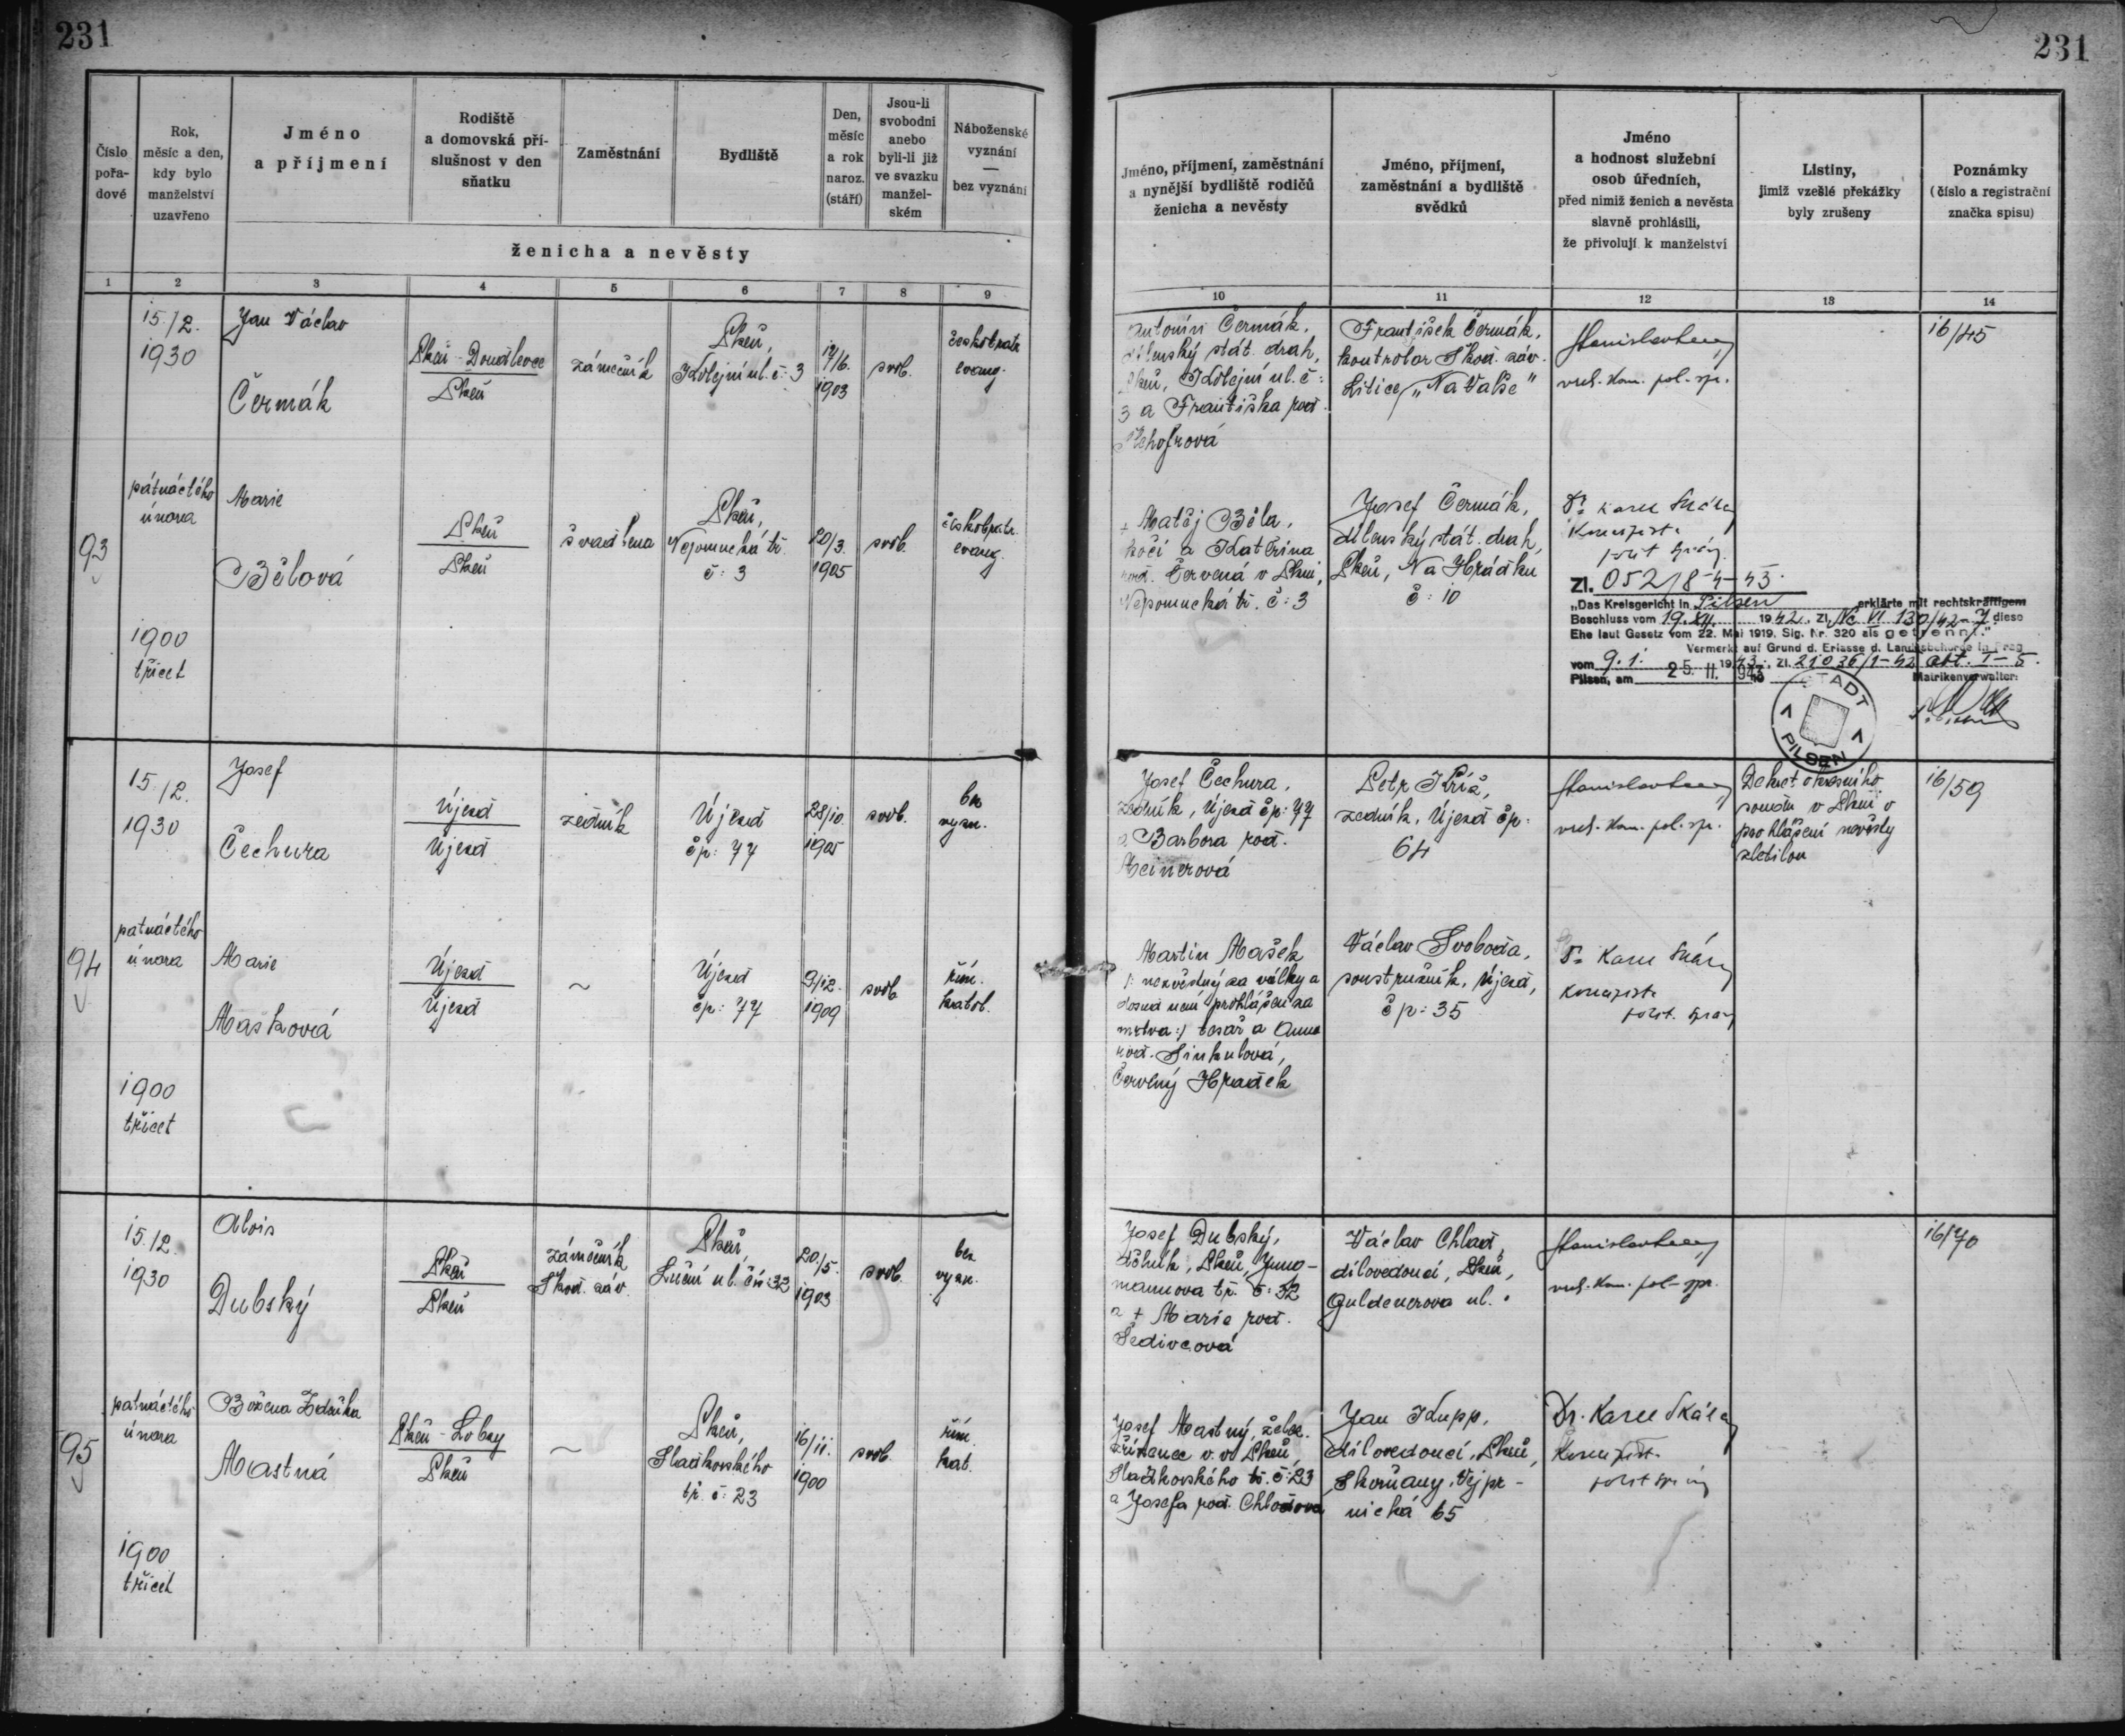 231
231
Číslo
pořa-
dové
Rok,
měsíc a den,
kdy bylo
manželství
uzavřeno
Jméno
a příjmení
Rodiště
a domovská pří-
slušnost v den
sňatku
Zaměstnání
Bydliště
Den,
měsíc
a rok
naroz.
(stáří)
Jsou-li
svobodni
anebo
byli-li již
ve svazku
manžel-
ském
Náboženské
vyznání
—
bez vyznání
ženicha a nevěsty
1 2 3 4 5 6 7 8 9
Jméno, příjmení, zaměstnání
a nynější bydliště rodičů
ženicha a nevěsty
Jméno, příjmení,
zaměstnání a bydliště
svědků
Jméno
a hodnost služební
osob úředních,
před nimiž ženich a nevěsta
slavně prohlásili,
že přivolují k manželství
Listiny,
jimiž vzešlé překážky
byly zrušeny
Poznámky
(číslo a registrační
značka spisu)
10 11 12 13 14
93
15./2.
1930
pátnáctého
února
1900
třicet
Jan Václav
Čermák
Plzeň - Doudlevce
Plzeň
zámečník
Plzeň,
Kolejní ul. č: 3
17/6.
1903
svob.
českobratr.
evang.
Marie
Bělová
Plzeň
Plzeň
švadlena
Plzeň,
Nepomucká tř.
č: 3
20/3.
1905
svob.
českobratr.
evang.
Antonín Čermák,
dílenský stát. drah,
Plzeň, Kolejní ul. č:
3 a Františka roz.
František Čermák,
kontrolor Škod. záv.
Litice, „Na Valše"
vrch. kom. pol. spr.
16/45
+ Matěj Běla,
kočí a Kateřina
roz. Červená v Plzni,
Nepomucká tř. č: 3
Josef Čermák,
dílenský stát. drah,
Plzeň, Na Hrádku
č: 10
Zl. 052/8-4-43.
„Das Kreisgericht in Pilsen erklärte mit rechtskräftigem
Beschluss vom 19. XII. 1942. Zl. Nc VI 130/42-7 diese
Ehe laut Gesetz vom 22. Mai 1919, Sig. Nr. 320 als getrennt."
Vermerk auf Grund d. Erlasse d. Landesbehörde in Prag
vom 9. 1. 1943. Zl. 21036/1-42 Abt. I-5.
Pilsen, am 25. II. 1943
Matrikenverwalter:
STADT
PILSEN
94
15./2.
1930
patnáctého
února
1900
třicet
Josef
Čechura
Újezd
Újezd
zedník
Újezd
čp: 77
28/10.
1905
svob.
bez
vyzn.
Marie
Mašková
Újezd
Újezd
~
Újezd
čp: 77
9/12.
1909
svob.
řím.
katol.
Josef Čechura,
zedník, Újezd čp: 77
a Barbora roz.
Meinerová
Petr Kříž,
zedník, Újezd čp:
64
vrch. kom. pol. spr.
Dekret okresního
soudu v Plzni o
prohlášení nevěsty
zletilou
16/59
Martin Mašek
/: nezvěstný za války a
dosud není prohlášen za
mrtva :/ tesař a Anna
roz. Sinkulová,
Červený Hrádek
Václav Svoboda,
soustružník, Újezd,
čp: 35
95
15./2.
1930
patnáctého
února
1900
třicet
Alois
Dubský
Plzeň
Plzeň
zámečník
Škod. záv.
Plzeň,
Luční ul. čís: 32
20/5.
1903
svob.
bez
vyzn.
Božena Zdeňka
Mastná
Plzeň - Lobzy
Plzeň
~
Plzeň,
Sladkovského
tř. č: 23
16/11.
1900
svob.
řím.
kat.
Josef Dubský,
dělník, Plzeň, Jung-
mannova tř. č: 32
a + Marie roz.
Šedivcová
Václav Chlad,
dílovedoucí, Plzeň,
Guldenerova ul.
vrch. kom. pol. spr.
16/70
Josef Mastný, želez.
zřízenec v. v. Plzeň,
Sladkovského tř. č: 23
a Josefa roz. Chladová
Jan Krupp,
dílovedoucí, Plzeň,
Skvrňany, Vejpr-
nická 65
Dr. Karel Skála